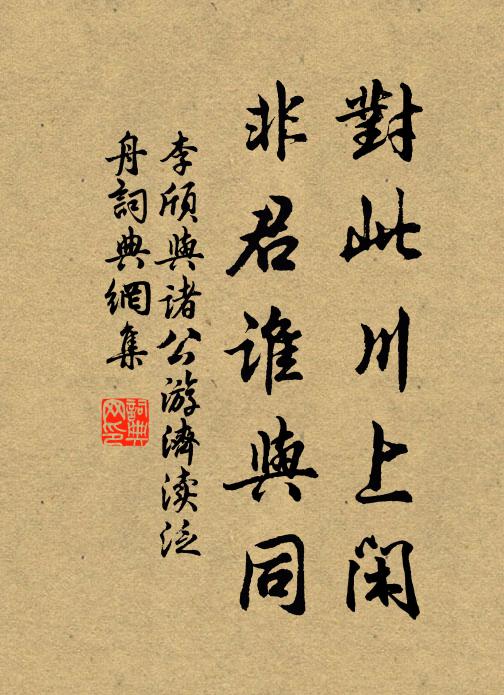 對此川上閑
非君誰與同
李頎與諸公游濟渎泛
舟詞典網集
詞典
网印